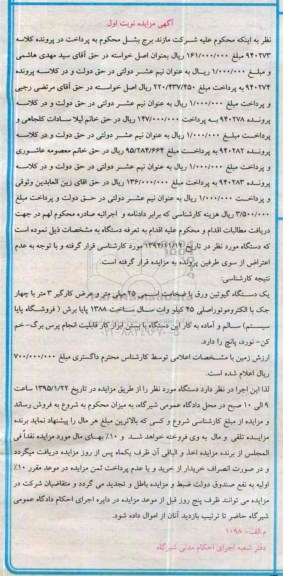 آگهی مزایده نوبت اول
نظر به اینکه محکوم علیه شرکت مازند برج بشل محکوم به پرداخت در پرونده کلاسه
۹۴۰۲۷۳ مبلغ ۱۶۱/۰۰۰/۰۰۰ ریال بعنوان اصل خواسته در حق آقای سید مهدی هاشمی
و مبلغ ۱/۰۰۰/۰۰۰ ریال به عنوان نیم عشر دولتی در حق دولت و در کلاسه پرونده
۹۴۰۲۷۴ به پرداخت مبلغ ۲۲۰/۴۳۷/۴۵۰ ریال اصل خواسته در حق آقای مرتضی رجبی
و پرداخت مبلغ ۱/۰۰۰/۰۰۰ به عنوان نیم عشر دولتی در حق دولت و در کلاسه
پرونده ۹۴۰۲۷۸ به پرداخت ۱۴۷/۰۰۰/۰۰۰ ریال در حق خانم لیلا سادات کلجاهی و
پرداخت مبلغ ۱/۰۰۰/۰۰۰ به عنوان نیم عشر دولتی در حق دولت و در کلاسه
پرونده ۹۴۰۲۸۲ به پرداخت مبلغ ۹۵/۲۸۴/۶۶۴ ریال در حق خانم معصومه عاشوری
و پرداخت مبلغ ۱/۰۰۰/۰۰۰ به عنوان نیم عشر دولتی در حق دولت و در کلاسه
پرونده ۹۴۰۲۸۳ به پرداخت مبلغ ۱۳۶/۰۰۰/۰۰۰ ریال در حق آقای زین العابدین وثوقی
و پرداخت ۱/۰۰۰/۰۰۰ ریال به عنوان نیم عشر دولتی در حق دولت و پرداخت مبلغ
۳/۵۰۰/۰۰۰ ریال هزینه کارشناسی که برابر دادنامه و اجرائیه صادره محکوم لهم در جهت
دریافت مطالبات اقدام و محکوم علیه اقدام به تعرفه دستگاه به مشخصات ذیل نموده است
که دستگاه مورد نظر در تاریخ مورد کارشناسی قرار گرفته و با توجه به عدم
اعتراض از سوی طرفین پرونده به مزایده قرار گرفته است.
نتیجه کارشناسی:
یک دستگاه گیوتین ورق با ضخامت اسمی ۲۵ میلی متر و عرض کارگیر ۳ متر با چهار
جک با الکتروموتور اصلی ۴۵ کیلو وات سال ساخت ۱۳۸۸ پایا برش (فروشگاه پایا
سیستم) سالم و آماده به کار این دستگاه با بستن ابزار کار قابلیت انجام پرس برک - خم
کن - نورد، پانچ را دارد.
ارزش زمین با مشخصات اعلامی توسط کارشناس محترم دادگستری مبلغ ۷۰۰/۰۰۰/۰۰۰
ریال اعلام شده است.
لذا این اجرا در نظر دارد دستگاه مورد نظر را از طریق مزایده در تاریخ ۱۳۹۵/۱/۲۲ ساعت
۹ الی ۱۰ صبح در محل دادگاه عمومی شیرگاه، به میزان محکوم به شروع به فروش رساند
و مزایده از مبلغ کارشناسی شروع و کسی که بالاترین مبلغ هر مال را پیشنهاد نماید برنده
مزایده تلقی و مال به وی فروخته خواهد شد و ۱۰٪ بهای مال مورد مزایده نقداً فی
المجلس از برنده مزایده اخذ و الباقی آن ظرف یکماه پس از روز مزایده دریافت میگردد
و در صورت انصراف خریدار از خرید و یا عدم پرداخت ثمن مزایده در موعد مقرر ۱۰٪
اولیه به نفع صندوق دولت ضبط و مزایده باطل و تجدید می گردد و متقاضیان شرکت در
مزایده می توانند ظرف پنج روز قبل از موعد مزایده در دایره اجرای احکام دادگاه عمومی
شیرگاه حاضر تا ترتیب بازدید آنان از اموال داده شود.
م الف - ۱۰۹۸
دفتر شعبه اجرای احکام مدنی شیرگاه